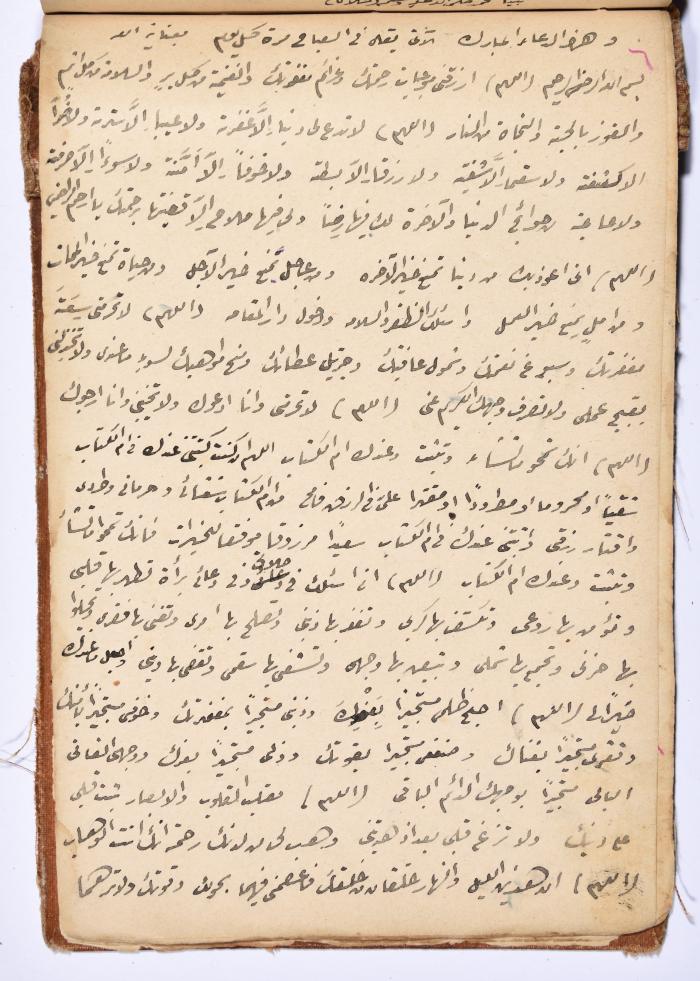 و هذه الدعاء المبارك الآتى يقرء فى الصباح مرة كل يوم بعناية الله
بسم الله الرحمن الرحيم (اللهم) ارزقنى موجبات رحمتك وعزائم مغفرتك والغنيمة من كل بر والسلامة من كل اثم
والفوز بالجنة والنجاة من النار (اللهم) لا تدع لى ذنبا الا غفرته ولا عيبا الا سترته ولا ضرا
الا كشفته ولا سقما الا شفيته ولا رزقا الا بسطته ولا خوفا الا أمنته ولا سوءا الا صرفته
ولا حاجة من حوائج الدنيا والآخرة لك فيها رضا ولى فيها صلاح الا قضيتها برحمتك يا ارحم الراحمين
(اللهم) انى اعوذ بك من دنيا تمنع خير الآخره ومن عاجل يمنع خير الآجل ومن حياة تمنع خير الممات
و من املٍ يمنع خير العمل واسئلك الظفر والسلامه ودخول دار المقامه (اللهم) لا تحرمنى سعة
مغفرتك وسبوغ نعمتك وشمول عافيتك وجزيل عطائك ومنح مواهبك لسوء ما عندى ولا تجازنى
بقبيح عملى ولا تصرف وجهك الكريم عنى (اللهم) لا تحرمنى وانا ادعوك ولا تخيبنى وانا ارجوك
(اللهم) انك تمحو ما تشاء وتثبت وعندك ام الكتاب اللهم ان كنت كتبتنى عندك فى ام الكتاب
شقياً او محروما او مطرودًا او مقترا علىّ فى الرزق فامح من ام الكتاب شقائى وحرمانى وطردى
واقتار رزقى واثبتنى عندك فى ام الكتاب سعيدًا مرزوقا موفقا للخيرات فانك تمحو ما تشأ
وتثبت وعندك ام الكتاب (اللهم) انى اسئلك فى صلاتى ودعائى بركة تطهر بها قلبى
و تؤمن بها روعى وتكشف بها كربى وتغفر بها ذنبى وتصلح بها امرى وتغنى بها فقرى وتجلوا
بها حزنى وتجمع بها شملى وتبيض بها وجهى وتشفى بها سقمى وتقضى بها دينى واجعل ما عندك
خيرًا لى (اللهم) اصبح ظلمى مستجيرًا بِعَفْوِكَ وذنبى مستجيرًا بمغفرتك وخوفى مستجيرًا بأمنك
وفقرى مستجيرًا بغناك وضعفى مستجيرا بقوتك وذلى مستجيرًا بعزك ووجهى الفانى
البالى مستجيرًا بوجهك الدائم الباقى (اللهم) مقلب القلوب والابصار ثبت قلبى
على دينك ولا تزغ قلبى بعد اذ هديتنى وهب لى من لدنك رحمة انك انت الوهاب
(اللهم) ان هذين الليل والنهار خلقان من خلقك فاعصمنى فيهما بحولك وقوتك ولا ترهما